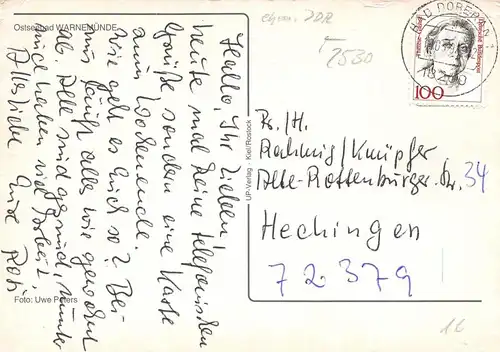 Ostseebad WARNEMÜNDE
ehem. DDR
2530
BAD DOBERAN 2
18200
100
Hallo, Ihr Lieben!
heute mal keine telefonischen
Grüße sondern eine Karte
zum Wochenende.
Wie geht es Euch so? Bei
uns läuft alles wie gewohnt
ab. Alle sind gesund, munter
und haben viel Arbeit.
Alles Liebe Eure
Fr./H.
Rahmig/Knüpfer
Alte-Rottenburger-Str. 34
Hechingen
72379
UP-Verlag - Kiel/Rostock
Foto: Uwe Peters